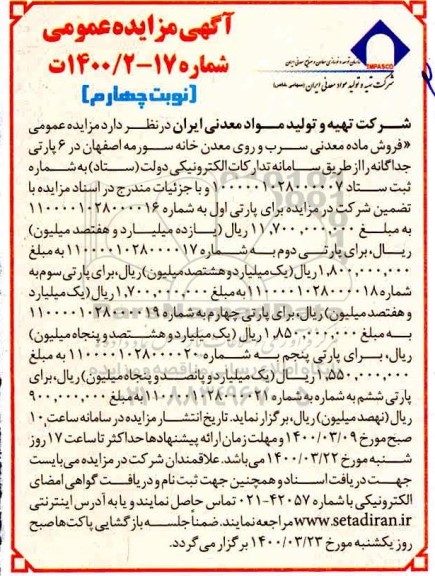 آگهی مزایده عمومی
شماره ۱۷-۱۴۰۰/۲ت
(نوبت چهارم)
IMPASCO
شرکت تهیه و تولید مواد معدنی ایران (سهامی خاص)
شرکت تهیه و تولید مواد معدنی ایران در نظر دارد مزایده عمومی
«فروش ماده معدنی سرب و روی معدن خانه سورمه اصفهان در ۶ پارتی
جداگانه را از طریق سامانه تدارکات الکترونیکی دولت (ستاد) به شماره
ثبت ستاد ۱۰۰۰۰۰۱۰۲۸۰۰۰۰۰۷ و با جزئیات مندرج در اسناد مزایده با
تضمین شرکت در مزایده برای پارتی اول به شماره ۱۱۰۰۰۰۱۰۲۸۰۰۰۰۱۶
به مبلغ ۱۱,۷۰۰,۰۰۰,۰۰۰ ریال (یازده میلیارد و هفتصد میلیون)
ریال، برای پارتی دوم به شماره ۱۱۰۰۰۰۱۰۲۸۰۰۰۰۱۷ به مبلغ
۱,۸۰۰,۰۰۰,۰۰۰ ریال (یک میلیارد و هشتصد میلیون) ریال، برای پارتی سوم به
شماره ۱۱۰۰۰۰۱۰۲۸۰۰۰۰۱۸ به مبلغ ۱,۷۰۰,۰۰۰,۰۰۰ ریال (یک میلیارد
و هفتصد میلیون) ریال، برای پارتی چهارم به شماره ۱۱۰۰۰۰۱۰۲۸۰۰۰۰۱۹
به مبلغ ۱,۸۵۰,۰۰۰,۰۰۰ ریال (یک میلیارد و هشتصد و پنجاه میلیون)
ریال، برای پارتی پنجم به شماره ۱۱۰۰۰۰۱۰۲۸۰۰۰۰۲۰ به مبلغ
۱,۵۵۰,۰۰۰,۰۰۰ ریال (یک میلیارد و پانصد و پنجاه میلیون) ریال، برای
پارتی ششم به شماره به شماره ۱۱۰۰۰۰۱۰۲۸۰۰۰۰۲۱ به مبلغ ۹۰۰,۰۰۰,۰۰۰
ریال (نهصد میلیون) ریال، برگزار نماید. تاریخ انتشار مزایده در سامانه ساعت ۱۰
صبح مورخ ۱۴۰۰/۰۳/۰۹ و مهلت زمان ارائه پیشنهادها حداکثر تا ساعت ۱۷ روز
شنبه مورخ ۱۴۰۰/۰۳/۲۲ می باشد. علاقمندان شرکت در مزایده می بایست
جهت دریافت اسناد و همچنین جهت ثبت نام و دریافت گواهی امضای
الکترونیکی با شماره ۴۲۰۵۷-۰۲۱ تماس حاصل نمایند و یا به آدرس اینترنتی
www.setadiran.ir مراجعه نمایند. ضمناً جلسه بازگشایی پاکت ها صبح
روز یکشنبه مورخ ۱۴۰۰/۰۳/۲۳ برگزار می گردد.